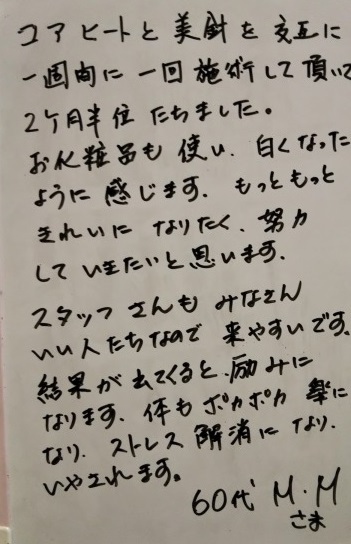 コアヒートと美針を交互に
一週間に一回施術して頂いて
2ケ月半位たちました。
お化粧品も使い、白くなった
ように感じます。もっともっと
きれいになりたく、努力
していきたいと思います。
スタッフさんもみなさん
いい人たちなので来やすいです。
結果が出てくると、励みに
なります。体もポカポカ楽に
なり、ストレス解消になり、
いやされます。
60代 M.M
さま